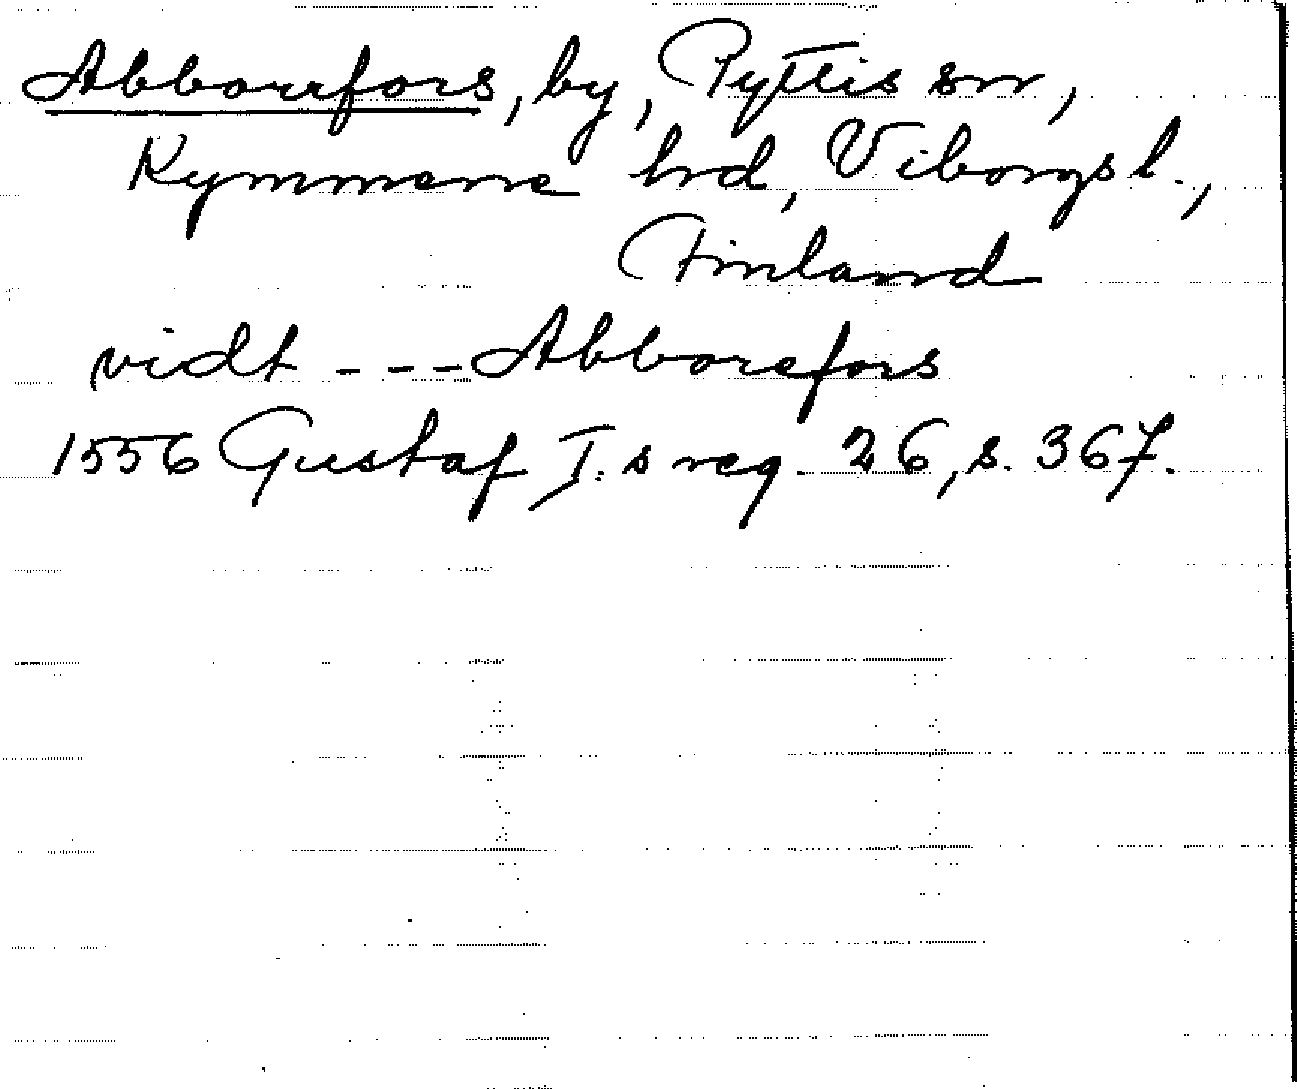 Abborrfors, by, Pyttis sn,
Kymmene hrd, Viborgs l.,
Finland
vidt --- Abborefors
1556 Gustaf I.s reg. 26, s. 367.